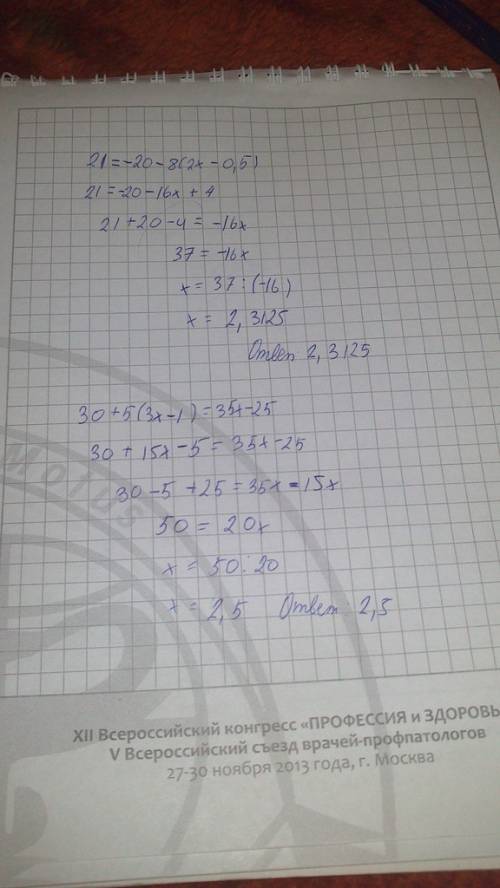 21 = -20 - 8(2x - 0,5)
21 = -20 - 16x + 4
21 + 20 - 4 = -16x
37 = -16x
x = 37 : (-16)
x = 2,3125
Ответ 2,3125
30 + 5(3x - 1) = 35x - 25
30 + 15x - 5 = 35x - 25
30 - 5 + 25 = 35x - 15x
50 = 20x
x = 50 : 20
x = 2,5 Ответ: 2,5
XII Всероссийский конгресс «ПРОФЕССИЯ и ЗДОРОВЬ
V Всероссийский съезд врачей-профпатологов
27-30 ноября 2013 года, г. Москва